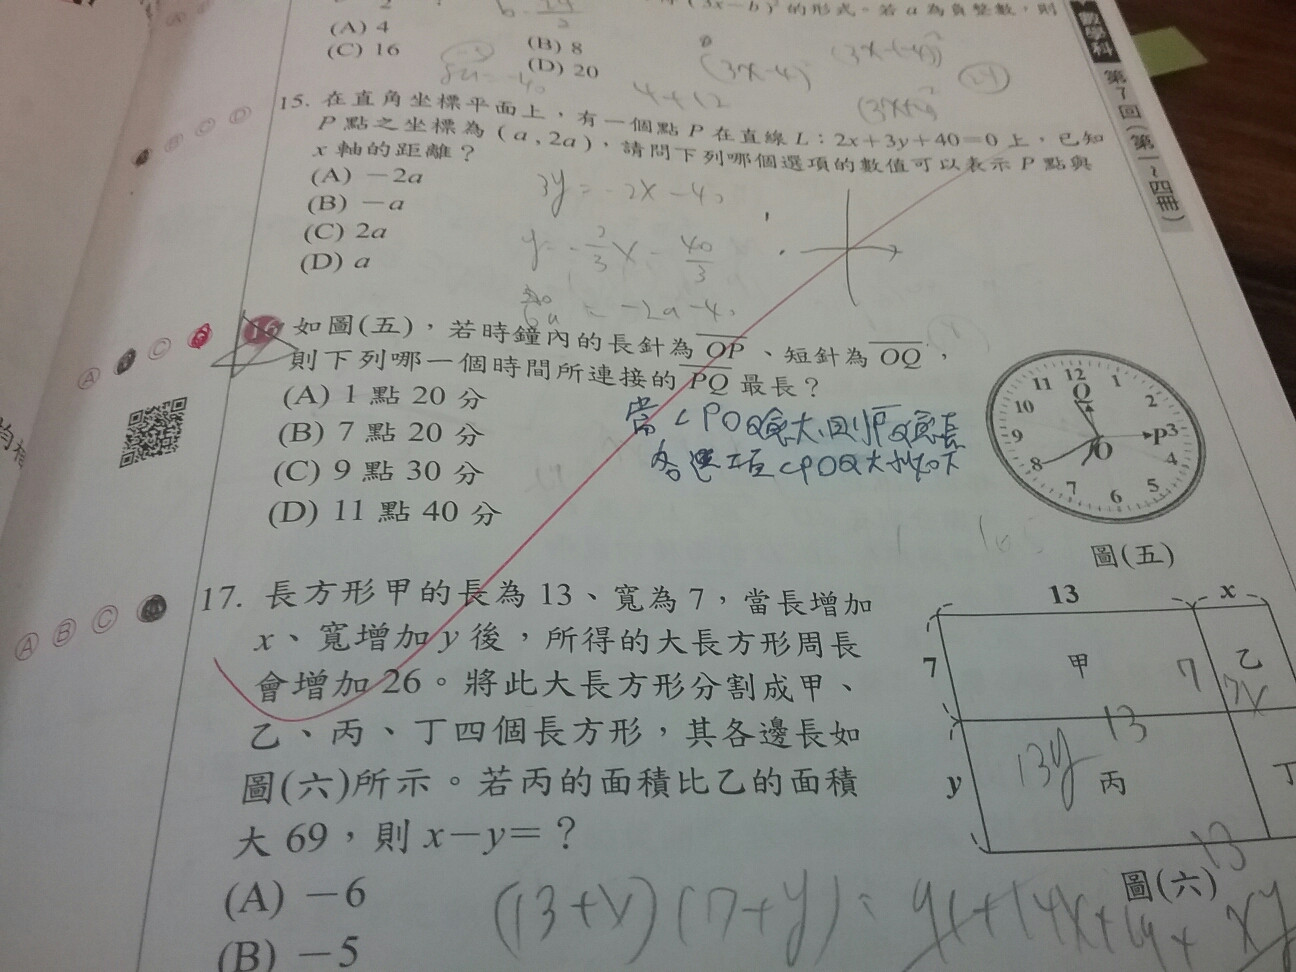 (3x−b)²的形式。若a為負整數，則
(A) 4
(B) 8
(C) 16
(D) 20
(3x-4)²
4+12
數學科 第7回(第一~四冊)
15. 在直角坐標平面上，有一個點P在直線L：2x+3y+40=0上，已知
P點之坐標為(a，2a)，請問下列哪個選項的數值可以表示P點與
x軸的距離？
(A) −2a
(B) −a
(C) 2a
(D) a
3y = -2x-40
y = -2/3 x - 40/3
6a = -2a-40
16 如圖(五)，若時鐘內的長針為OP、短針為OQ，
則下列哪一個時間所連接的PQ最長？
(A) 1 點 20 分
(B) 7 點 20 分
(C) 9 點 30 分
(D) 11 點 40 分
當∠POQ愈大,則PQ愈長
各選項∠POQ大小如下
12 1 2 3 4 5 6 7 8 9 10 11
Q
P
O
圖(五)
A
C
A B C
17. 長方形甲的長為 13、寬為 7，當長增加
x、寬增加 y 後，所得的大長方形周長
會增加 26。將此大長方形分割成甲、
乙、丙、丁四個長方形，其各邊長如
圖(六)所示。若丙的面積比乙的面積
大 69，則 x−y=？
(A) −6
(B) −5
13 x
7 甲 7 乙 7x
13
y 13y 丙 丁
13
圖(六)
(13+x)(7+y)=